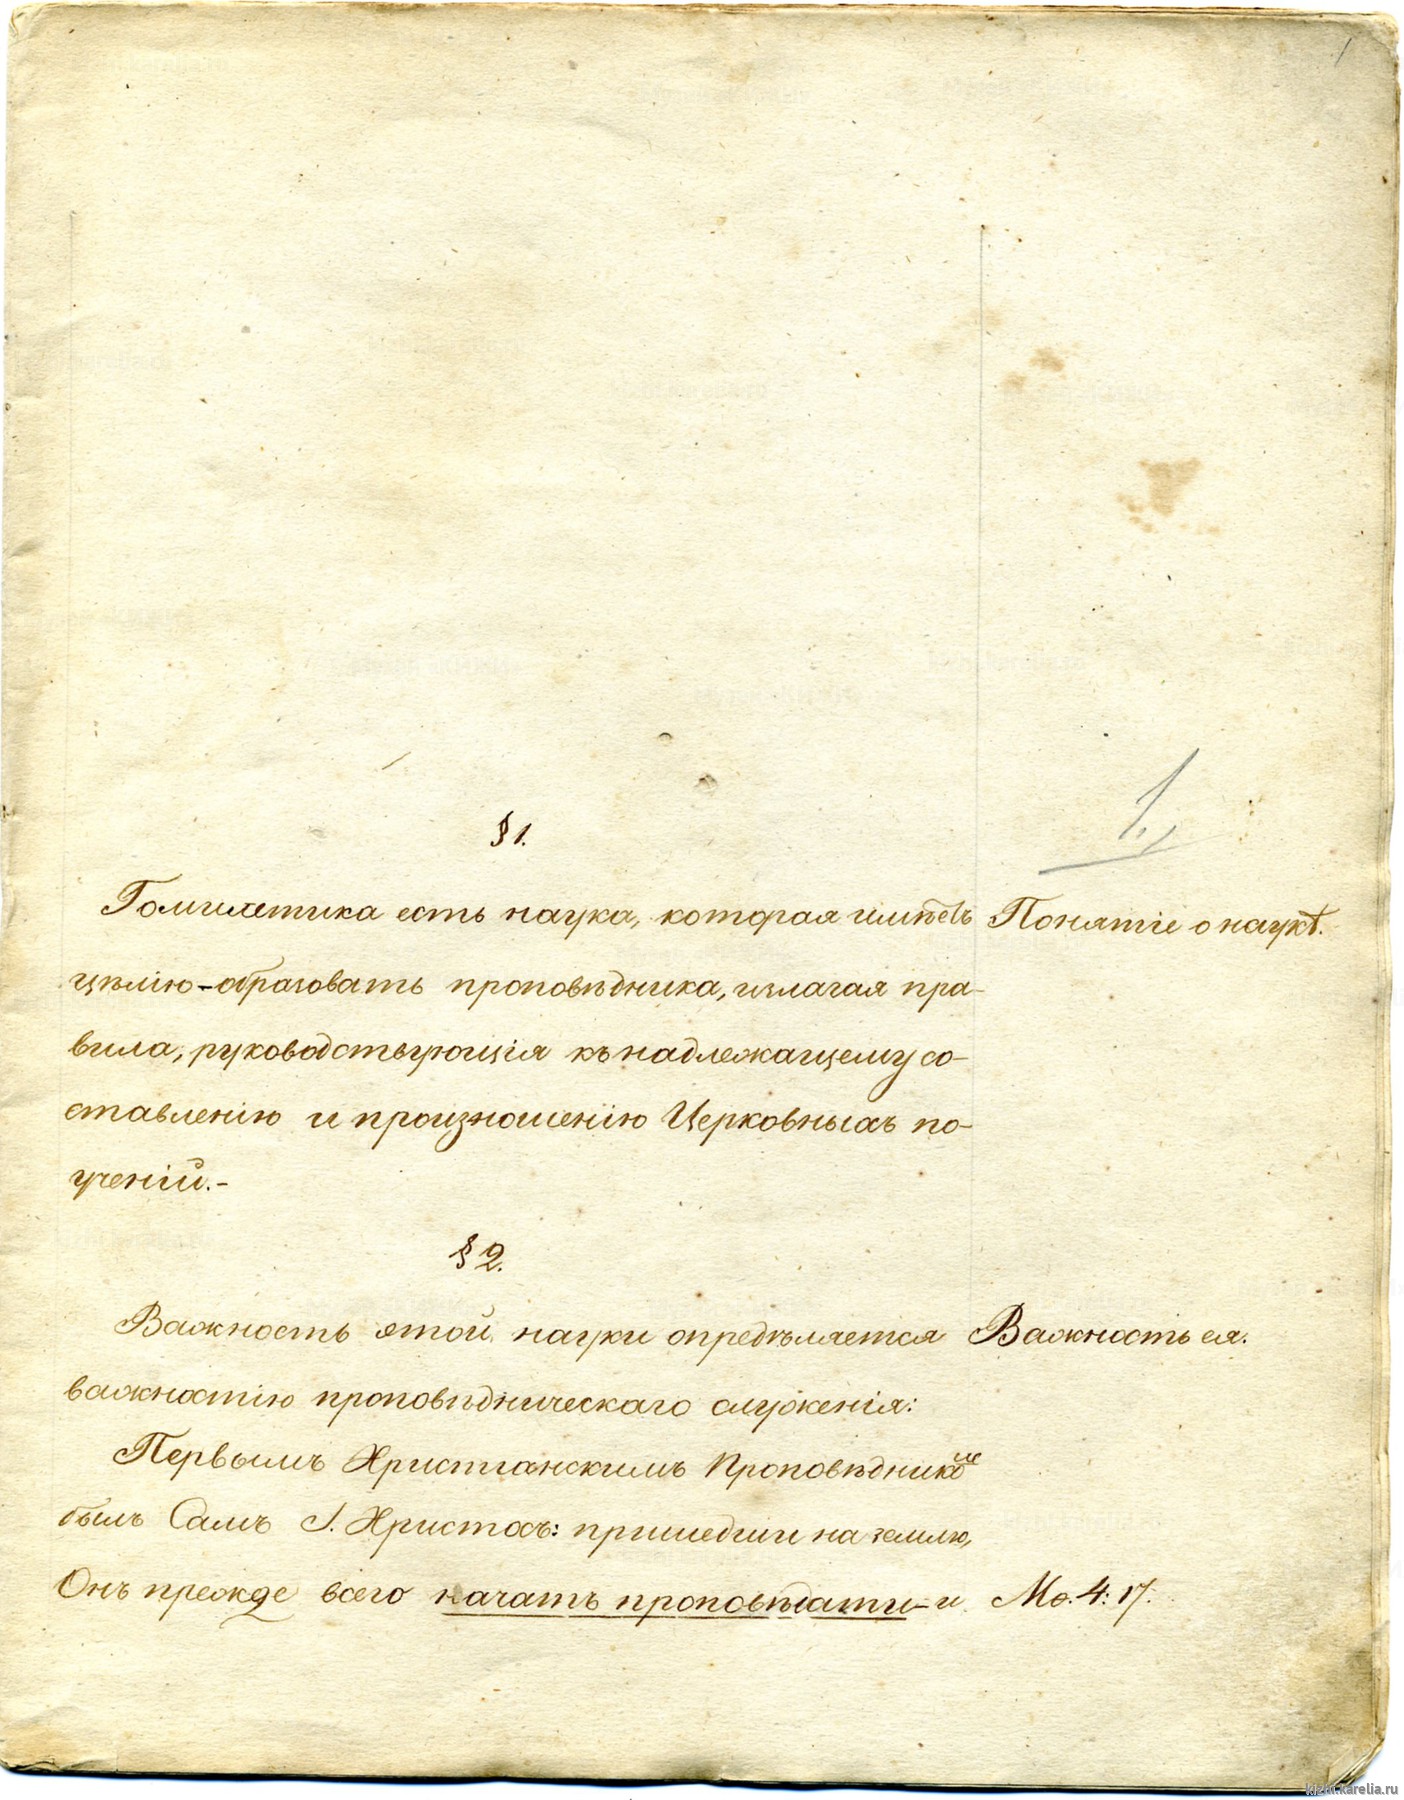 1
1.
§ 1.
Гомилетика есть наука, которая имѣетъ
Понятіе о наукѣ.
цѣлію - образовать проповѣдника, излагая пра-
вила, руководствующія къ надлежащему со-
ставленію и произношенію Церковныхъ по-
ученій. -
§ 2.
Важность этой науки опредѣляется
Важность ея.
важностію проповѣдническаго служенія:
Первымъ Христіанскимъ Проповѣдникомъ
былъ Самъ І. Христосъ: пришедши на землю,
Онъ прежде всего начатъ проповѣдати - и
Мѳ. 4: 17.
kizhi.karelia.ru